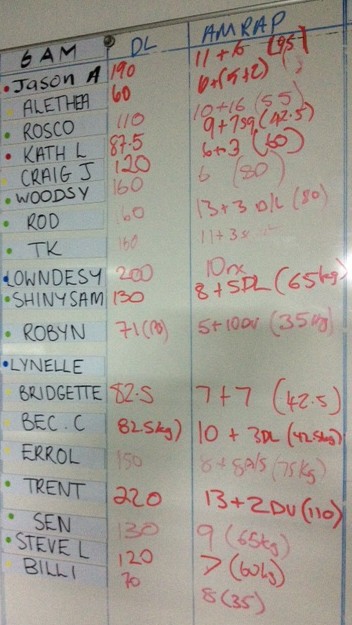 6 AM DL AMRAP
Jason A 190 11 + 16 (95)
ALETHEA 60
ROSCO 110 10 + 16 (55)
KATH L 87.5 9 + (42.5)
CRAIG J 120 6 + 3 (60)
WOODSY 160 6 (80)
ROD 160 13 + 3 D/L (80)
TK 11 + 3
LOWNDESY 200 10
SHINYSAM 130 8 + 5DL (65kg)
ROBYN 71 5 + 10DU (35kg)
LYNELLE
BRIDGETTE 82.5 7 + 7 (42.5)
BEC.C 82.5kg) 10 + 3DL (42.5kg)
ERROL 150 8 + (75kg)
TRENT 220 13 + 2DU (110)
SEN 130 9 (65kg)
STEVE L 120 7 (60kg)
BILLI 70 8 (35)